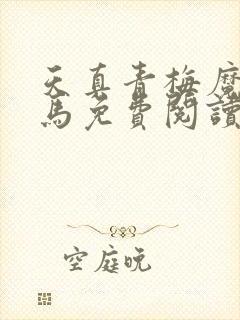 天真青梅魔
馬免費閱讀
空庭晚